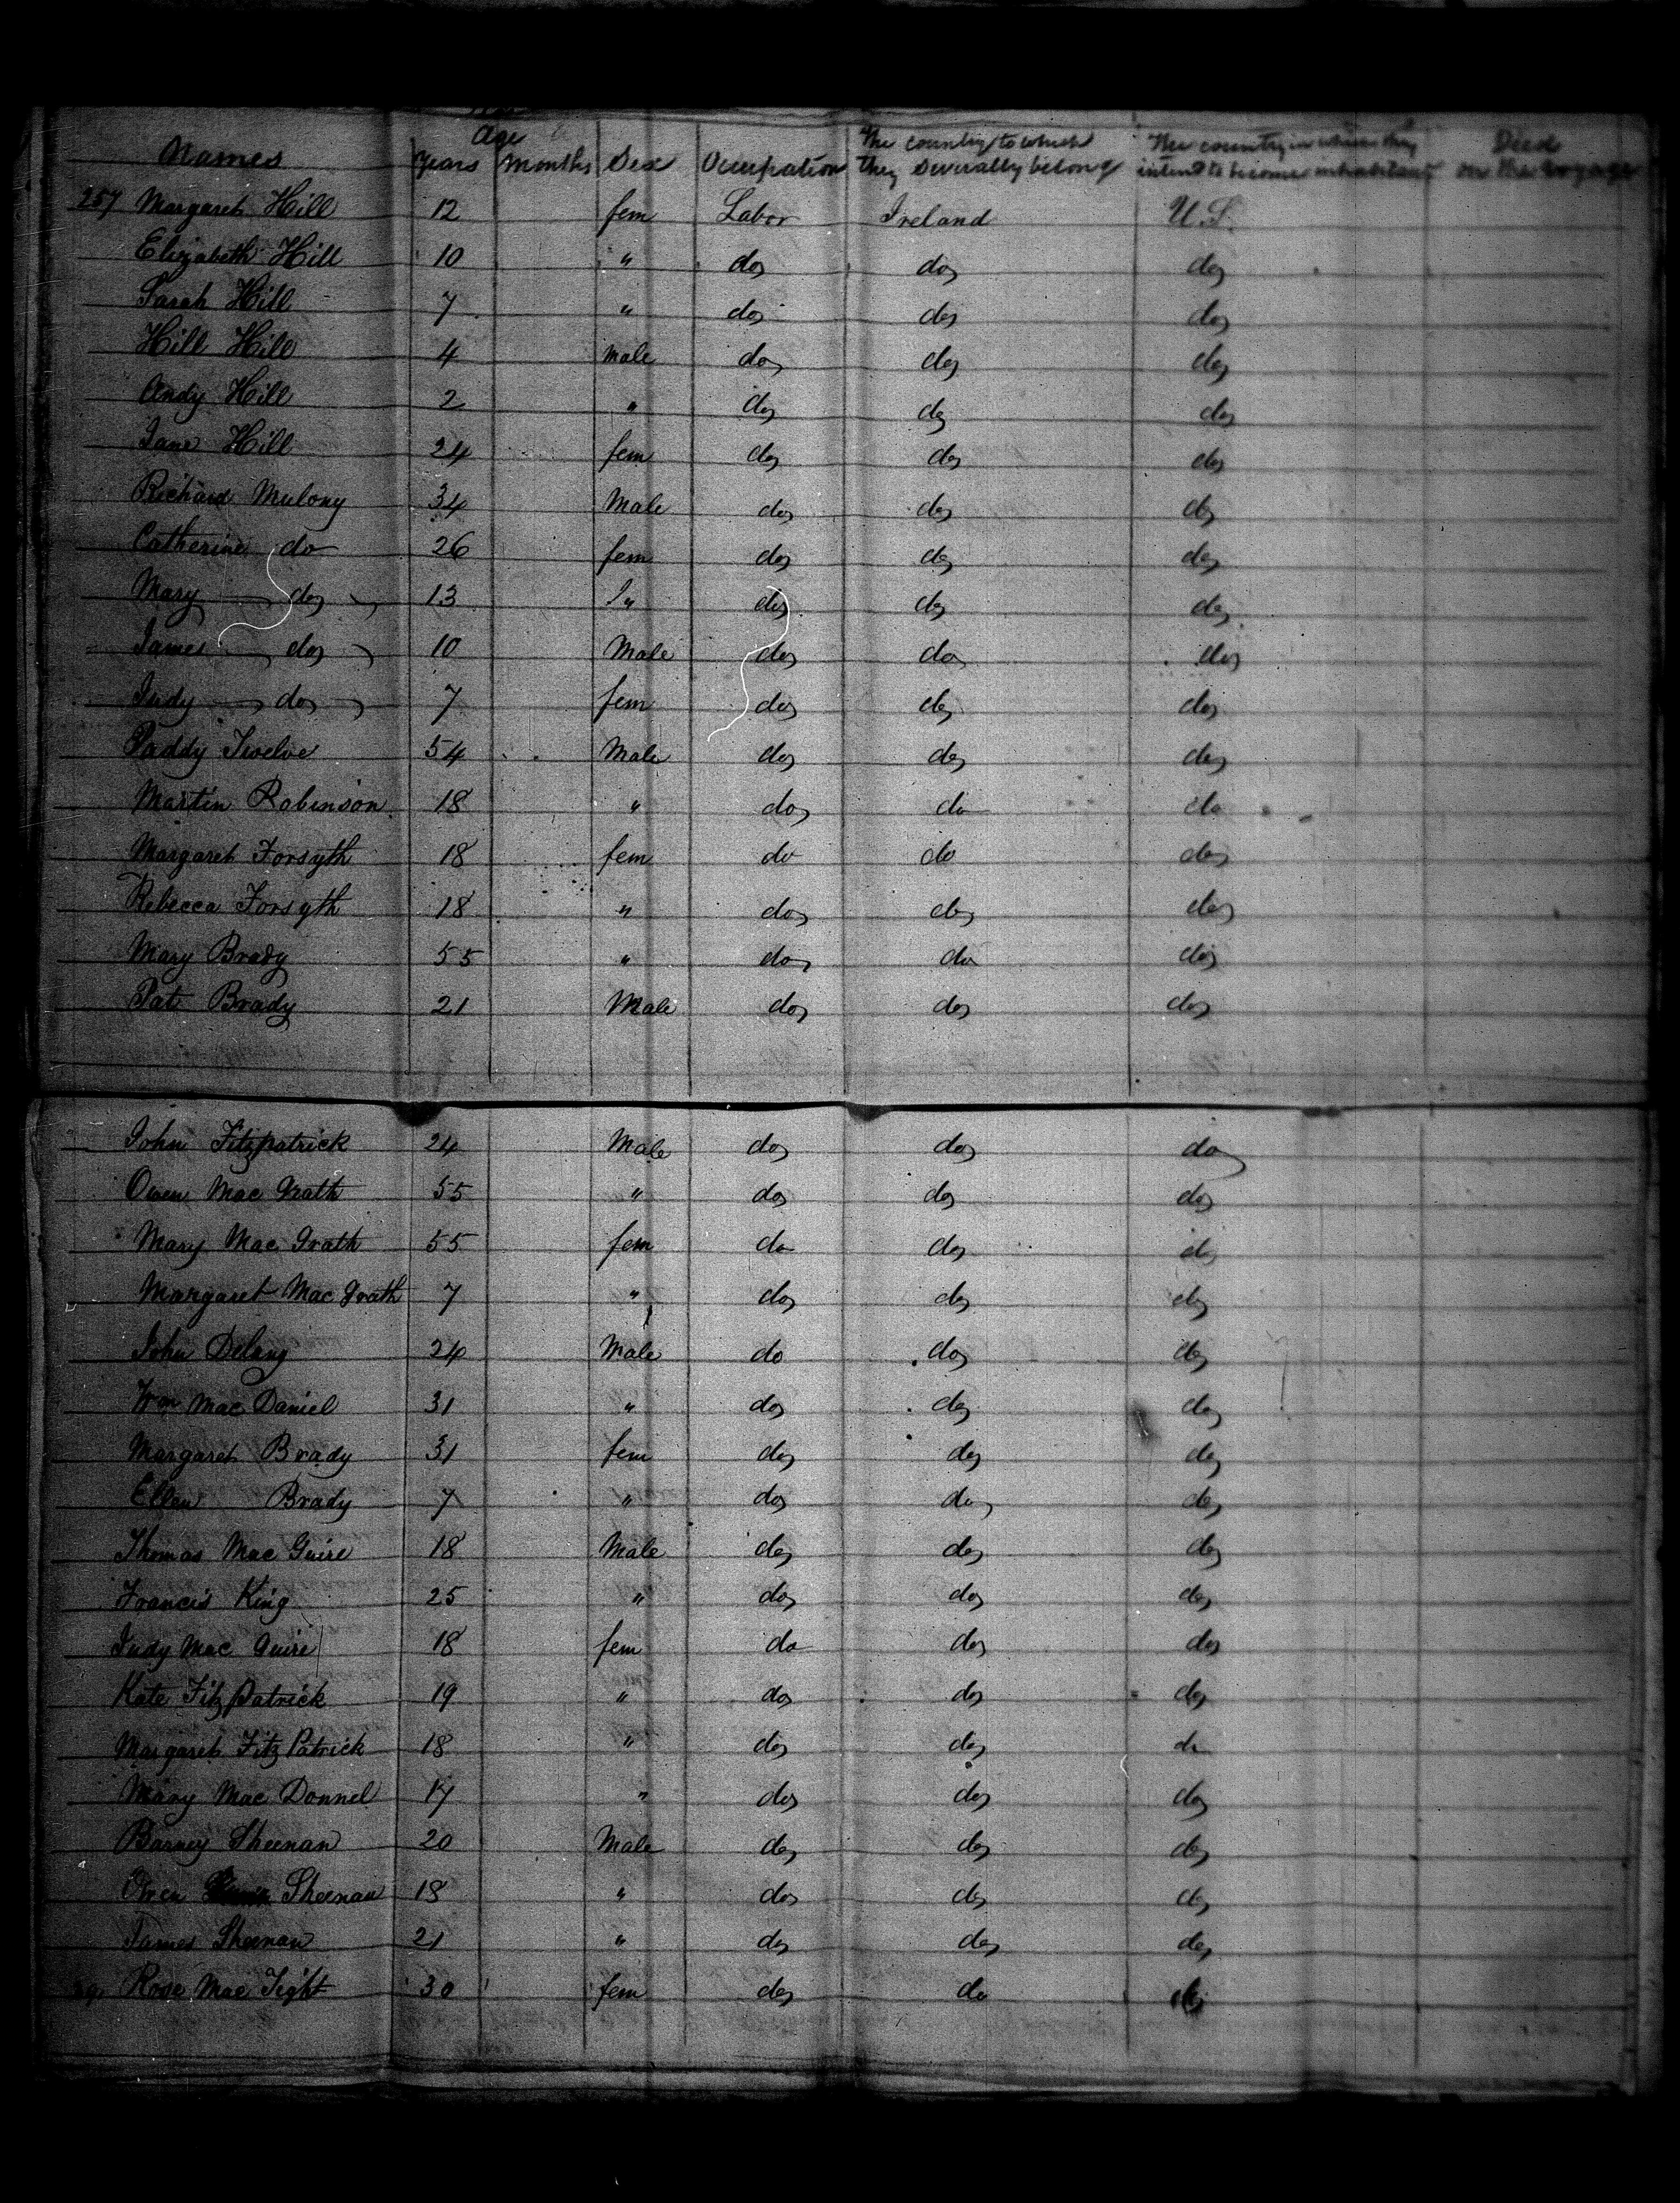 Names Age Years Months Sex Occupation The country to which they severally belong The country in which they intend to become inhabitants Died on the voyage
257 Margaret Hill 12 fem Labor Ireland U.S.
Elizabeth Hill 10 " do do do
Sarah Hill 7 " do do do
Hill Hill 4 Male do do do
Andy Hill 2 " do do do
Jane Hill 24 fem do do do
Richard Mulony 34 Male do do do
Catherine do 26 fem do do do
Mary do 13 " do do do
James do 10 Male do do do
Judy do 7 fem do do do
Paddy Twelve 54 Male do do do
Martin Robinson 18 " do do do
Margaret Forsyth 18 fem do do do
Rebecca Forsyth 18 " do do do
Mary Brady 55 " do do do
Pat Brady 21 Male do do do
John Fitzpatrick 24 Male do do do
Owen Mac Grath 55 " do do do
Mary Mac Grath 55 fem do do do
Margaret Mac Grath 7 " do do do
John Delany 24 Male do do do
Wm Mac Daniel 31 " do do do
Margaret Brady 31 fem do do do
Ellen Brady 7 " do do do
Thomas Mac Guire 18 Male do do do
Francis King 25 " do do do
Judy Mac Guire 18 fem do do do
Kate FitzPatrick 19 " do do do
Margaret FitzPatrick 18 " do do do
Mary Mac Donnel 17 " do do do
Barney Sheenan 20 Male do do do
Owen Sheenan 18 " do do do
James Sheenan 21 " do do do
Rose Mac Tight 30 fem do do do